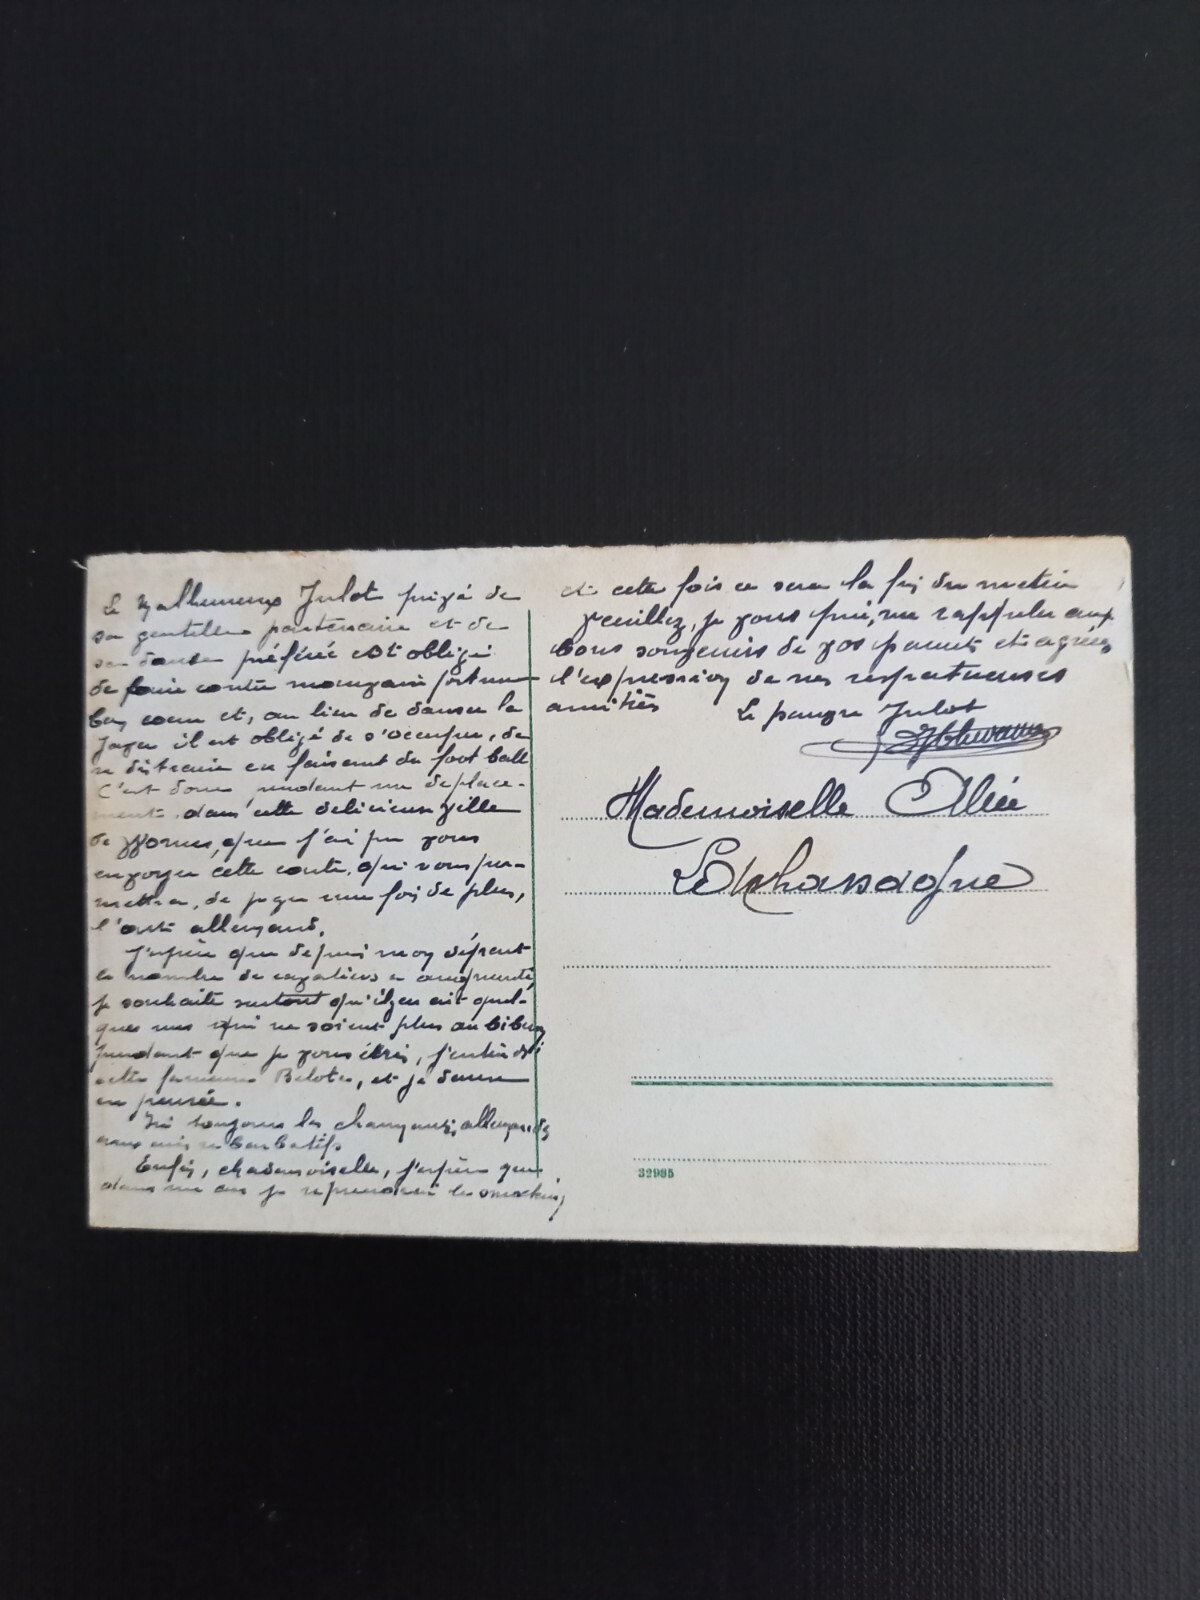 Le Malheureux Julot privé de
sa gentille partenaire et de
sa danse préférée est obligé
de faire contre mauvaise fortune
bon cœur et, au lieu de danser la
Java il est obligé de s'occuper, de
se distraire en faisant du foot ball
C'est donc pendant un déplace-
ment dans cette délicieuse ville
de Worms, que j'ai pu vous
envoyer cette carte, qui vous per-
mettra, de juger une fois de plus,
l'art allemand.
J'espère que depuis mon départ
le nombre de cavaliers a augmenté,
je souhaite surtout qu'il y en ait quel-
ques uns qui ne soient plus au biberon
pendant que je vous écris, j'entends
cette fameuse Belote, et je danse
en pensée.
Ici toujours les allemands
Enfin, Mademoiselle, j'espère que
dans un an je reprendrai le smoking
et cette fois ce sera la fin du métier
Veuillez, je vous prie, me rappeler aux
bons souvenirs de vos parents et agréez
l'expression de mes respectueuses
amitiés Le pauvre Julot
Mademoiselle Alice
Lachassagne
32985